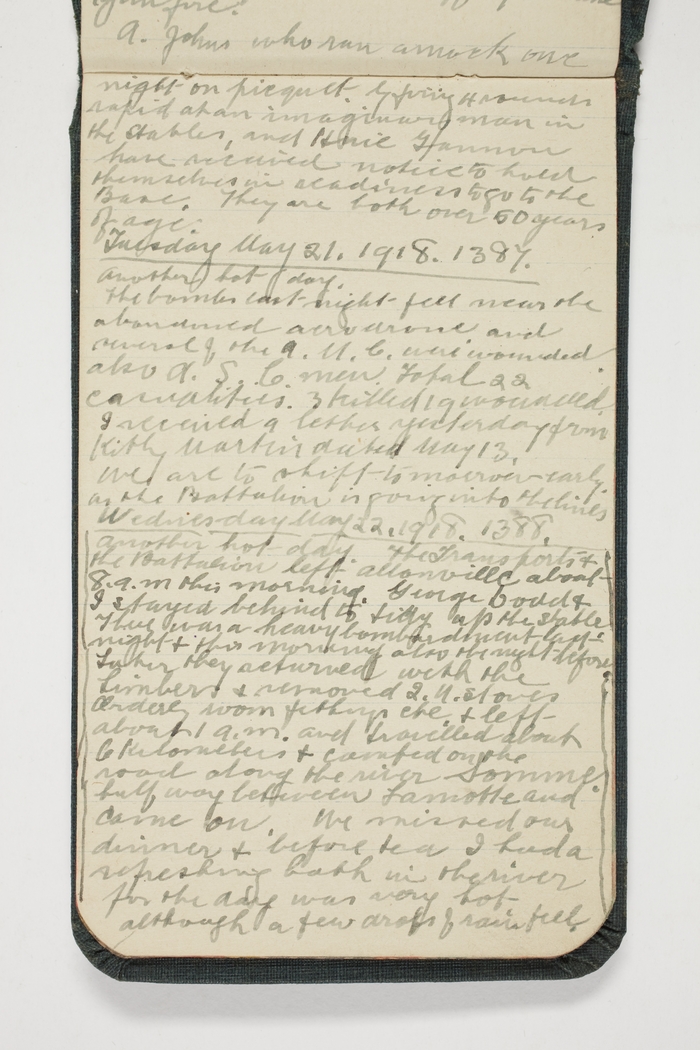 A. Johns who ran amock one
night on picquet by firing 4 rounds
rapid at an imaginary man in
the stables, and Gannon
have received notice to hold
themselves in readiness to go to the
Base. They are both over 50 years
of age.
Tuesday May 21. 1918. 1387.
Another hot day.
The bombs last night fell near the
abandoned aerodrome and
several of the A. M. C. were wounded
also A. S. C. men. Total 22
casualities. 3 killed 19 wounded.
I received a letter yesterday from
Kitty Martin dated May 13.
We are to shift tomorrow early
as the Battalion is going into the lines
Wednesday May 22. 1918. 1388.
Another hot day. The Transports &
the Battalion left Allonville about
8. a.m this morning. George Dodd &
I stayed behind to tidy up the stable
There was a heavy bombardment last
night & this morning also the night before
Later they returned with the
limbers & removed Q.M. stoves
Orderly room fittings etc. & left
about 1 a.m. and travelled about
6 Kilometers & camped on the
road along the river Somme
half way between Lamotte and
came on. We missed our
dinner & before tea I had a
refreshing bath in the river
for the day was very hot
although a few drops of rain fell